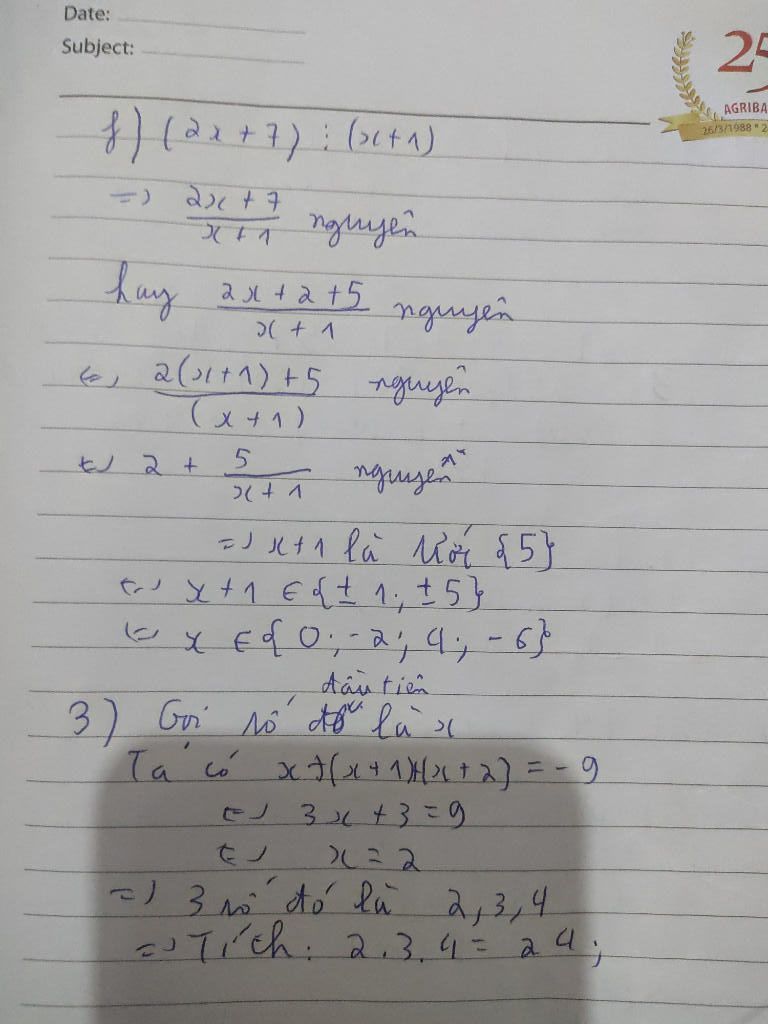 Date:
Subject:
25
AGRIBA
26/3/1988 * 2
f) (2x + 7) ⋮ (x+1)
=> (2x + 7)/(x + 1) nguyên
hay (2x + 2 + 5)/(x + 1) nguyên
<=> (2(x+1) + 5)/((x+1)) nguyên
<=> 2 + 5/(x + 1) nguyên
=> x+1 là Ước {5}
<=> x+1 ∈ {± 1; ± 5}
<=> x ∈ {0; -2; 4; -6}
đầu tiên
3) Gọi số là x
Ta có x+(x+1)+(x+2) = -9
<=> 3x + 3 = 9
<=> x = 2
=> 3 số đó là 2, 3, 4
=> Tích: 2.3.4 = 24;